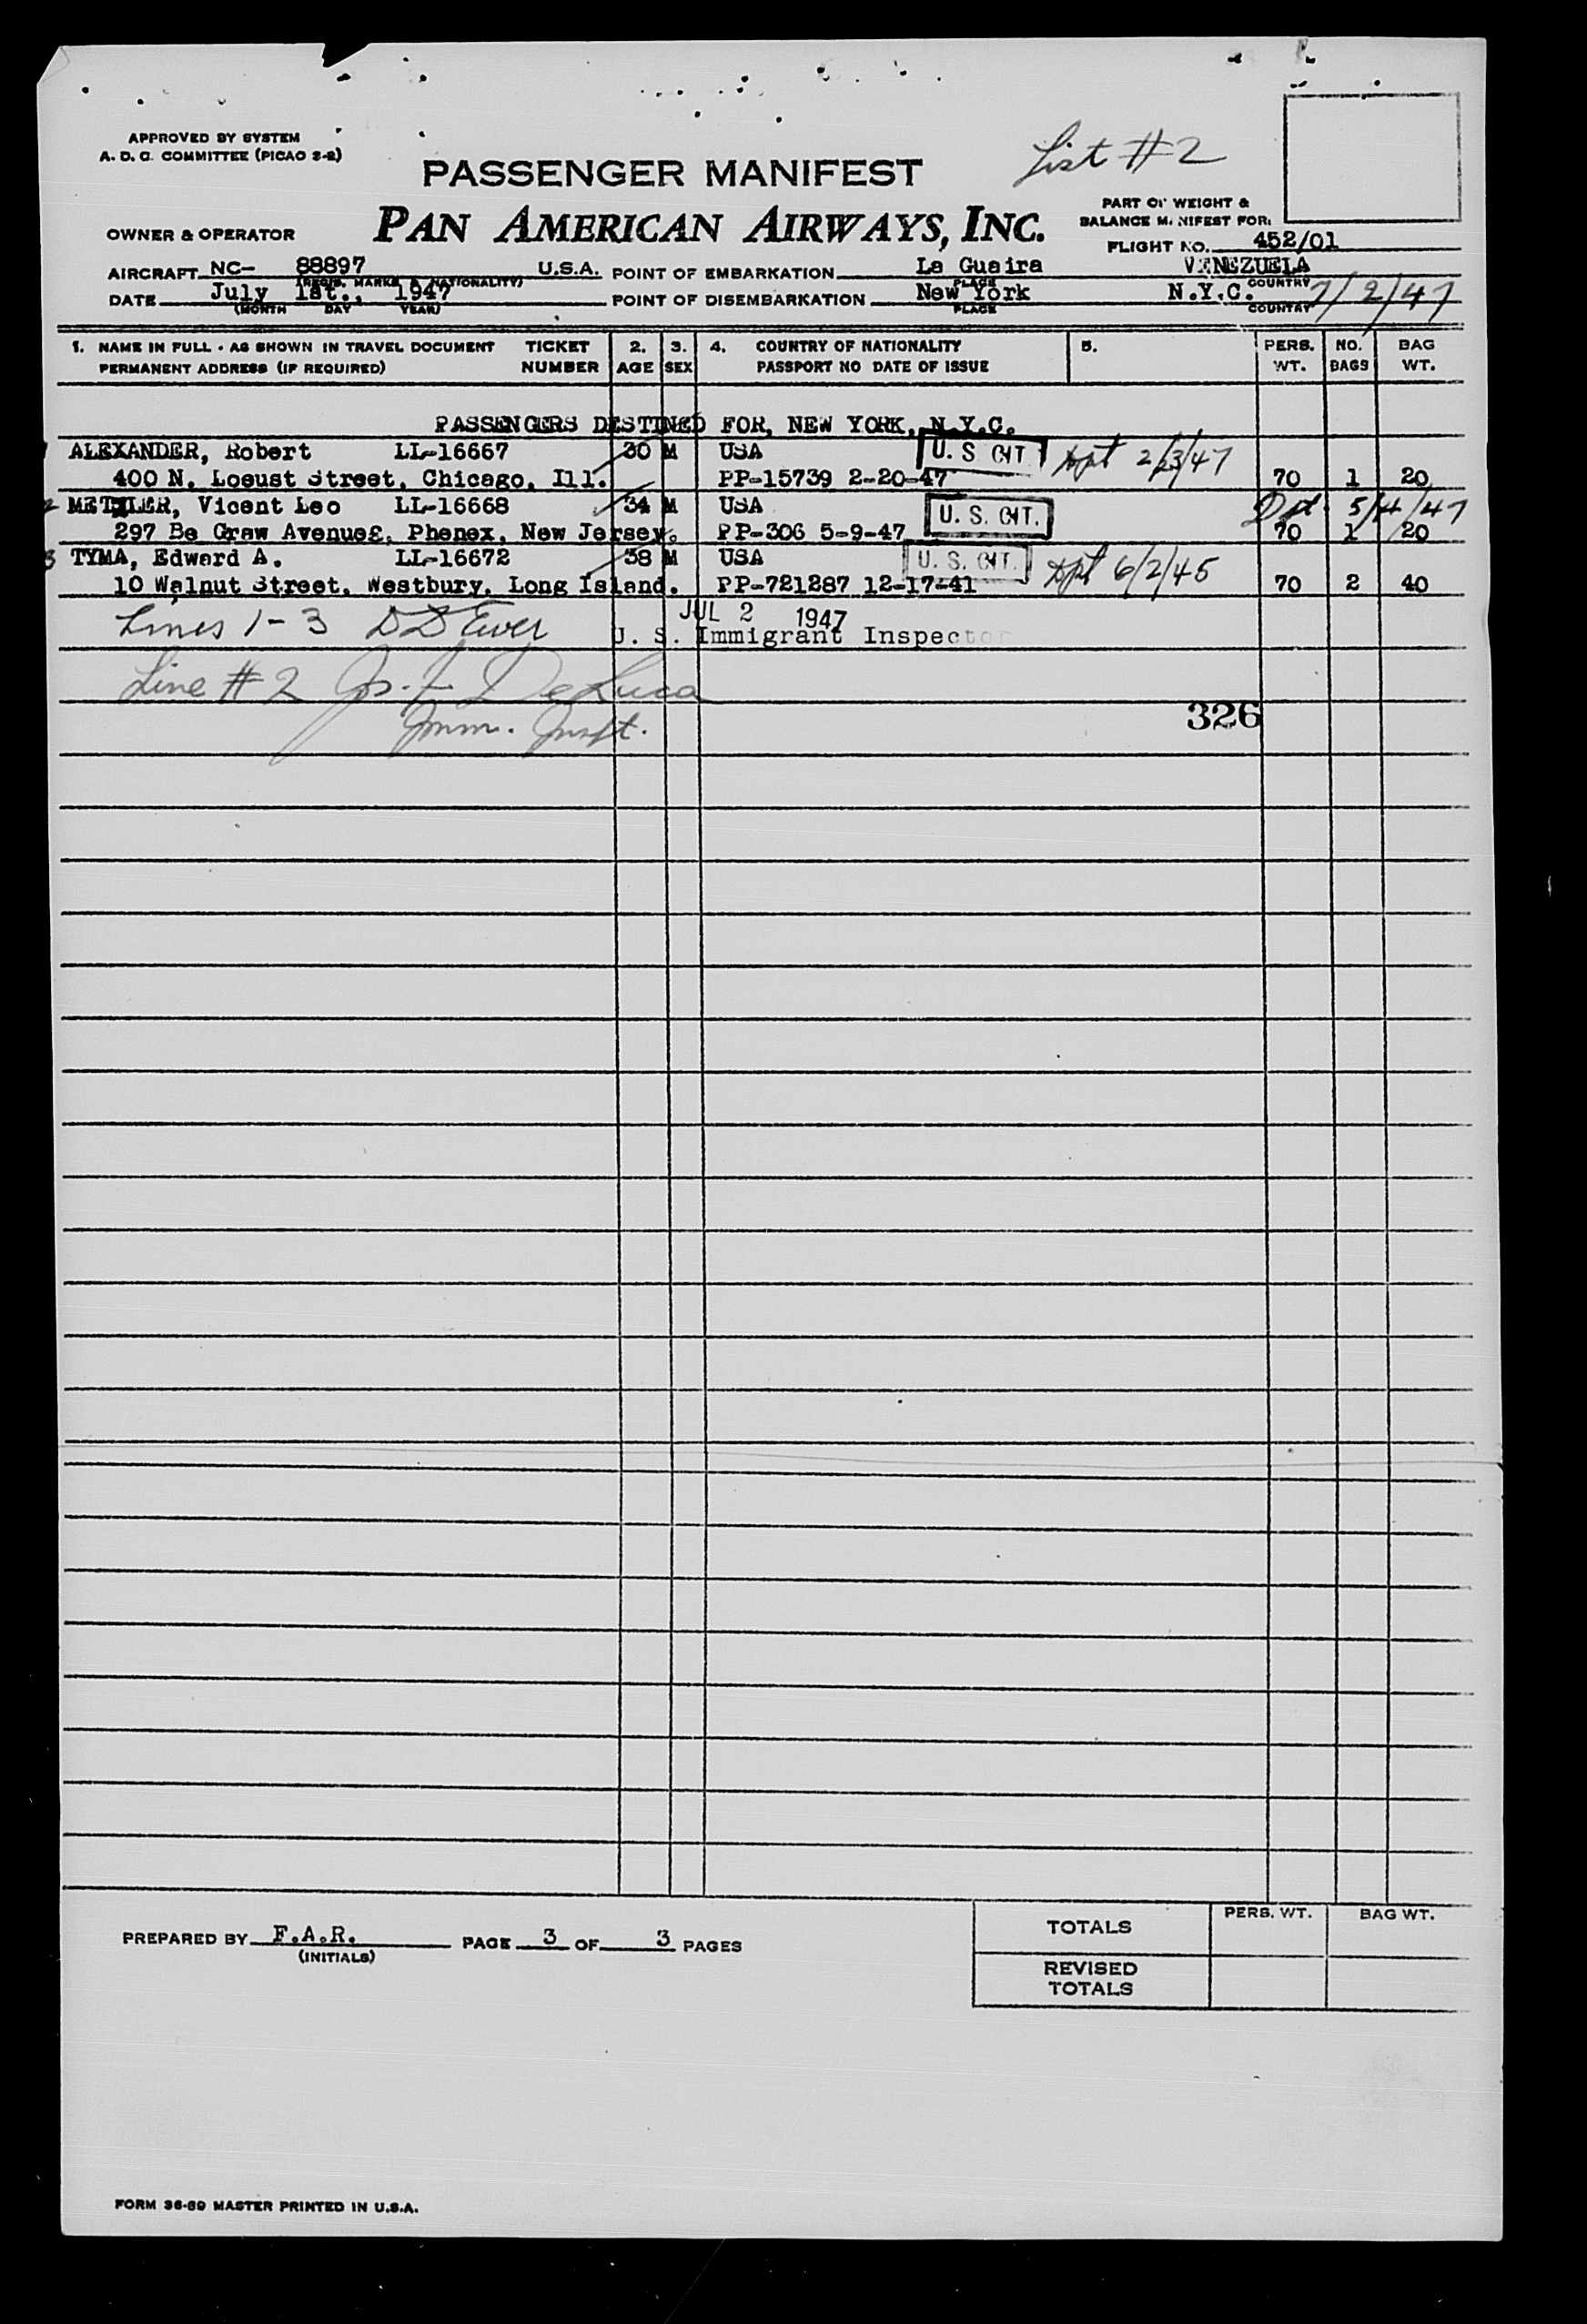 APPROVED BY SYSTEM
A. D. C. COMMITTEE (PICAO 2-2)
List #2
PASSENGER MANIFEST
PART OF WEIGHT &
BALANCE MANIFEST FOR:
OWNER & OPERATOR PAN AMERICAN AIRWAYS, INC.
FLIGHT NO. 452/01
AIRCRAFT NC- 88897 U.S.A. POINT OF EMBARKATION La Guaira VENEZUELA
(REGIS. MARKS & NATIONALITY) PLACE COUNTRY
DATE July 1st., 1947 POINT OF DISEMBARKATION New York N.Y.C. 7/2/47
(MONTH DAY YEAR) PLACE COUNTRY
1. NAME IN FULL - AS SHOWN IN TRAVEL DOCUMENT TICKET 2. 3. 4. COUNTRY OF NATIONALITY 5. PERS. NO. BAG
PERMANENT ADDRESS (IF REQUIRED) NUMBER AGE SEX PASSPORT NO DATE OF ISSUE WT. BAGS WT.
PASSENGERS DESTINED FOR, NEW YORK, N.Y.C.
1 ALEXANDER, Robert LL-16667 30 M USA U. S. CIT. Dpt 2/23/47
400 N. Locust Street, Chicago, Ill. PP-15739 2-20-47 70 1 20
2 METZLER, Vicent Leo LL-16668 34 M USA U. S. CIT. Dpt 5/14/47
297 Be Graw Avenue&, Phenex, New Jersey. PP-306 5-9-47 70 1 20
3 TYMA, Edward A. LL-16672 38 M USA U. S. CIT. Dpt 6/2/45
10 Walnut Street, Westbury, Long Island. PP-721287 12-17-41 70 2 40
Lines 1-3 JUL 2 1947
U. S. Immigrant Inspector
Line #2 Jos. F. DeLuca
Imm. Inspt.
326
PREPARED BY F.A.R. PAGE 3 OF 3 PAGES
(INITIALS)
PERS. WT. BAG WT.
TOTALS
REVISED
TOTALS
FORM 36-69 MASTER PRINTED IN U.S.A.